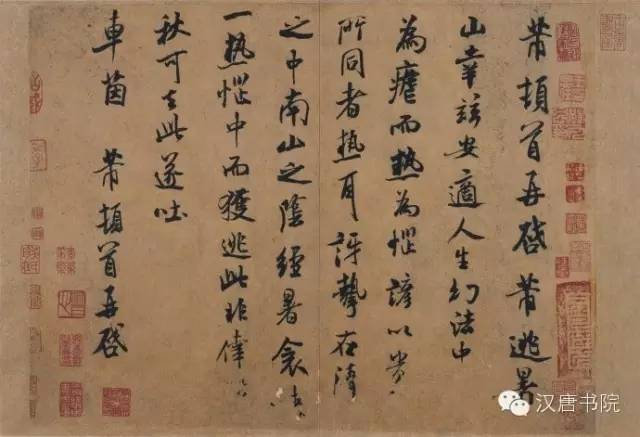 芾頓首再啓芾逃暑
山幸兹安適人生幻法中
為瘧而热為惱諺以貴
所同者热耳訝挚在清
之中南山之陰經暑衾
一热惱中而獲逃此非倖
秋可去此遂吐
車茵 芾頓首再啓
汉唐书院